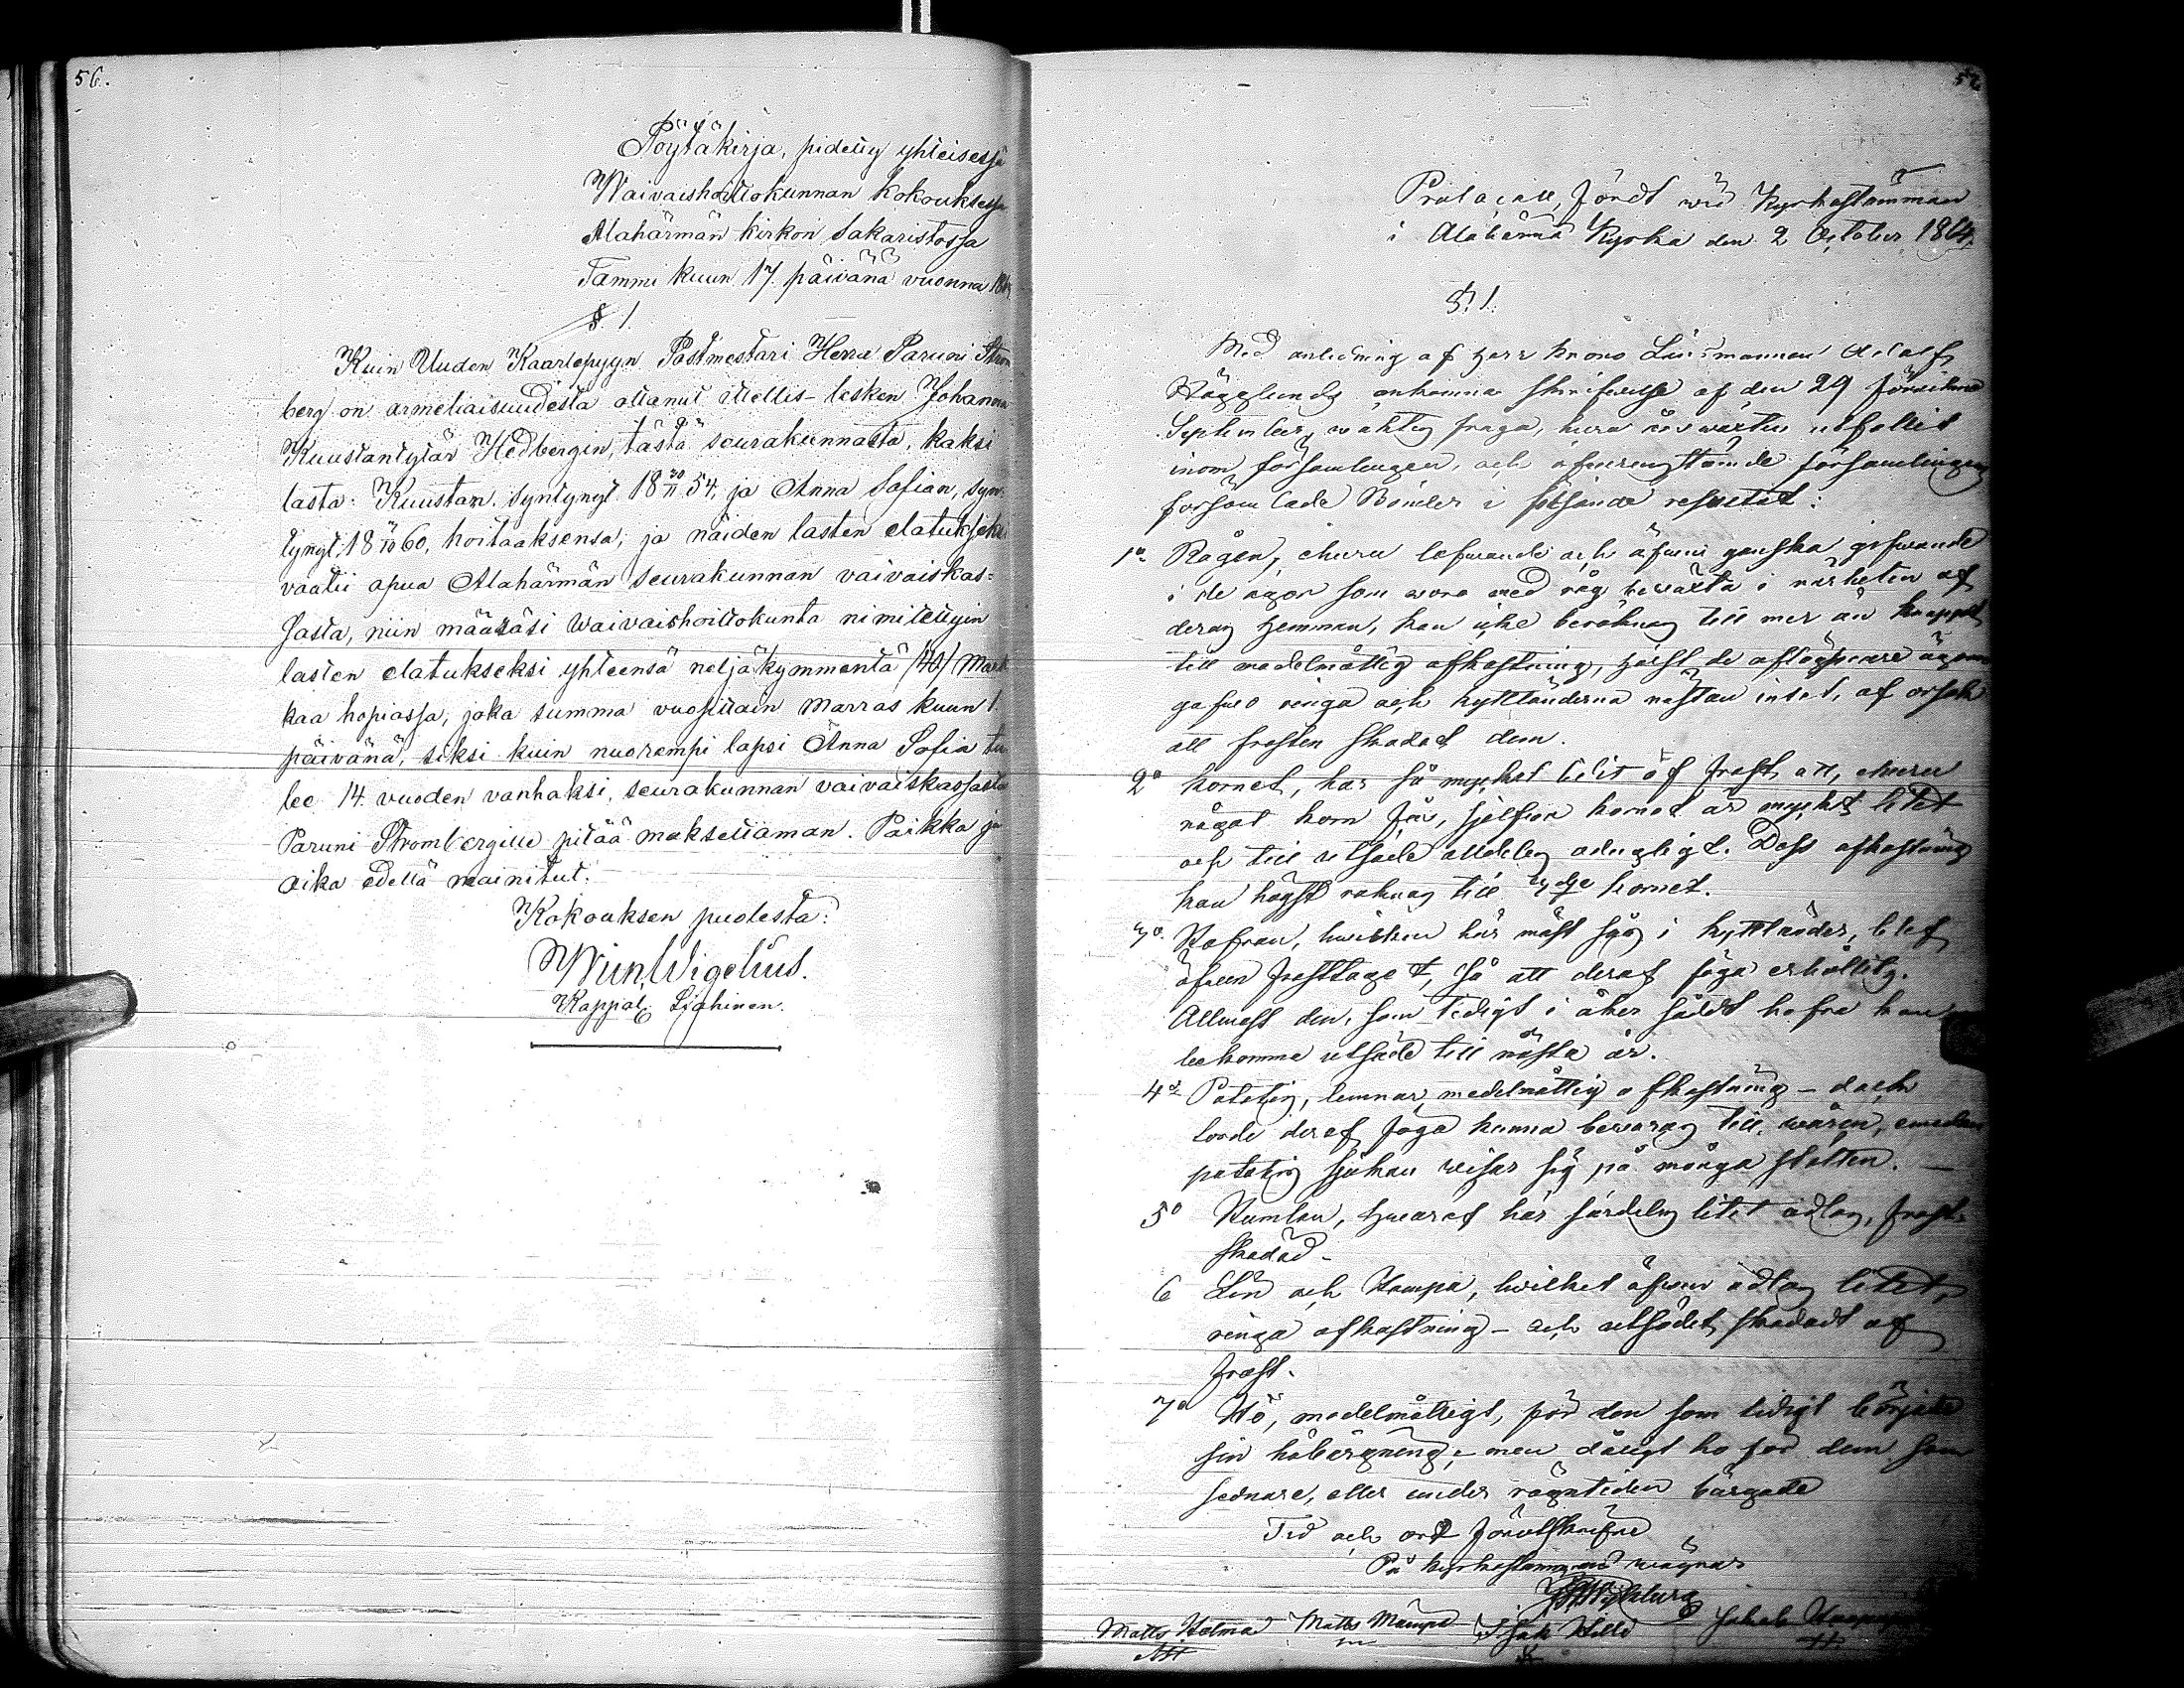 56.
Pöytäkirja, pidetty yhteisessä
Waivaishoittokunnan kokouksessa
Alahärmän kirkon Sakaristossa
Tammi kuun 17. päivänä vuonna
§. 1.
Kuin Uuden Kaarlepyyn Postmestari Herra Paruni Strom
berg on armeliaisuudesta ottanut ittellis-lesken Johanna
Kuustantytär Hedbergin, tästä seurakunnasta, kaksi
lasta: Kuustan, syntynyt 18 20/11 54, ja Anna Sofian, syn-
tynyt 18 /10 60, hoitaaksensa, ja näiden lasten elatukseksi
vaatii apua Alahärmän seurakunnan vaivaiskas=
sasta, niin määräsi Waivaishoittokunta nimitettyin
lasten elatukseksi yhteensä neljäkymmentä /40/ Mark
kaa hopiassa, joka summa vuosittain Marras kuun 1.
päivänä, siksi kuin nuorempi lapsi Anna Sofia tu
lee 14 vuoden vanhaksi, seurakunnan vaivaiskassasta
Paruni Strombergille pitää maksettaman. Paikka ja
aika edellä mainitut.
Kokouksen puolesta:
Wigelius.
Kappal.
57
Protocoll, fördt wid Kyrkostämman
i Alahärmä Kyrka den 2 October 1864.
§. 1.
Med anledning af Herr Krono Länsmannen Adolf
Hägglunds ankomna skrifwelse af den 29 förwikne
September, wäktes fråga, huru årswäxten utfallit
inom församlingen, och öfwerensstämde församlingens
församlade Bönder i följande resultat:
1o Rågen, ehuru lofwande och äfwen ganska gifwande
i de ägor som woro med råg bewäxta i närheten af
deras Hemman, kan icke beräknas till mer än knappt
till medelmåttig afkastning, Hälst de aflägsnare ägorna
gåfwo ringa och kyttländerna nästan intet, af orsak
att frosten skadat dem.
2o Kornet, har så mycket lidit af frost, att, ehuru
något korn fås, sjelfwa kornet är mycket litet
och till utsäde alldeles odugligt. Dess afkastning
kan högst räknas till kornet.
3o Hafran, hwilken här mäst sås i kyttländer, blef
äfwen frosttaget, så att deraf föga erhållits.
Allmost den, som tidigt i åker sådt hafra kan
bekomma utsäde till nästa år.
4o Potates, lemnar medelmåttig afkastning - dock
torde deraf föga kunna bewaras till wåren, emedan
potates sjukan wisar sig på många ställen. -
5o Humlan, Hwaraf här särdeles litet odlas, frost-
skadad -
6 Lin och Hampa, hwilket äfwen odlas litet,
ringa afkastning - och utsädet skadadt af
frost.
7o Hö, medelmåttigt, för den som tidigt började
sin höbärgning, - men dåligt hö för dem som
sednare, eller under rägntiden bärgade
Tid och ort förutskrifne
På kyrkostämmans wägnar
Matts Holma Matts Mämpä Isak Hilli Jakob